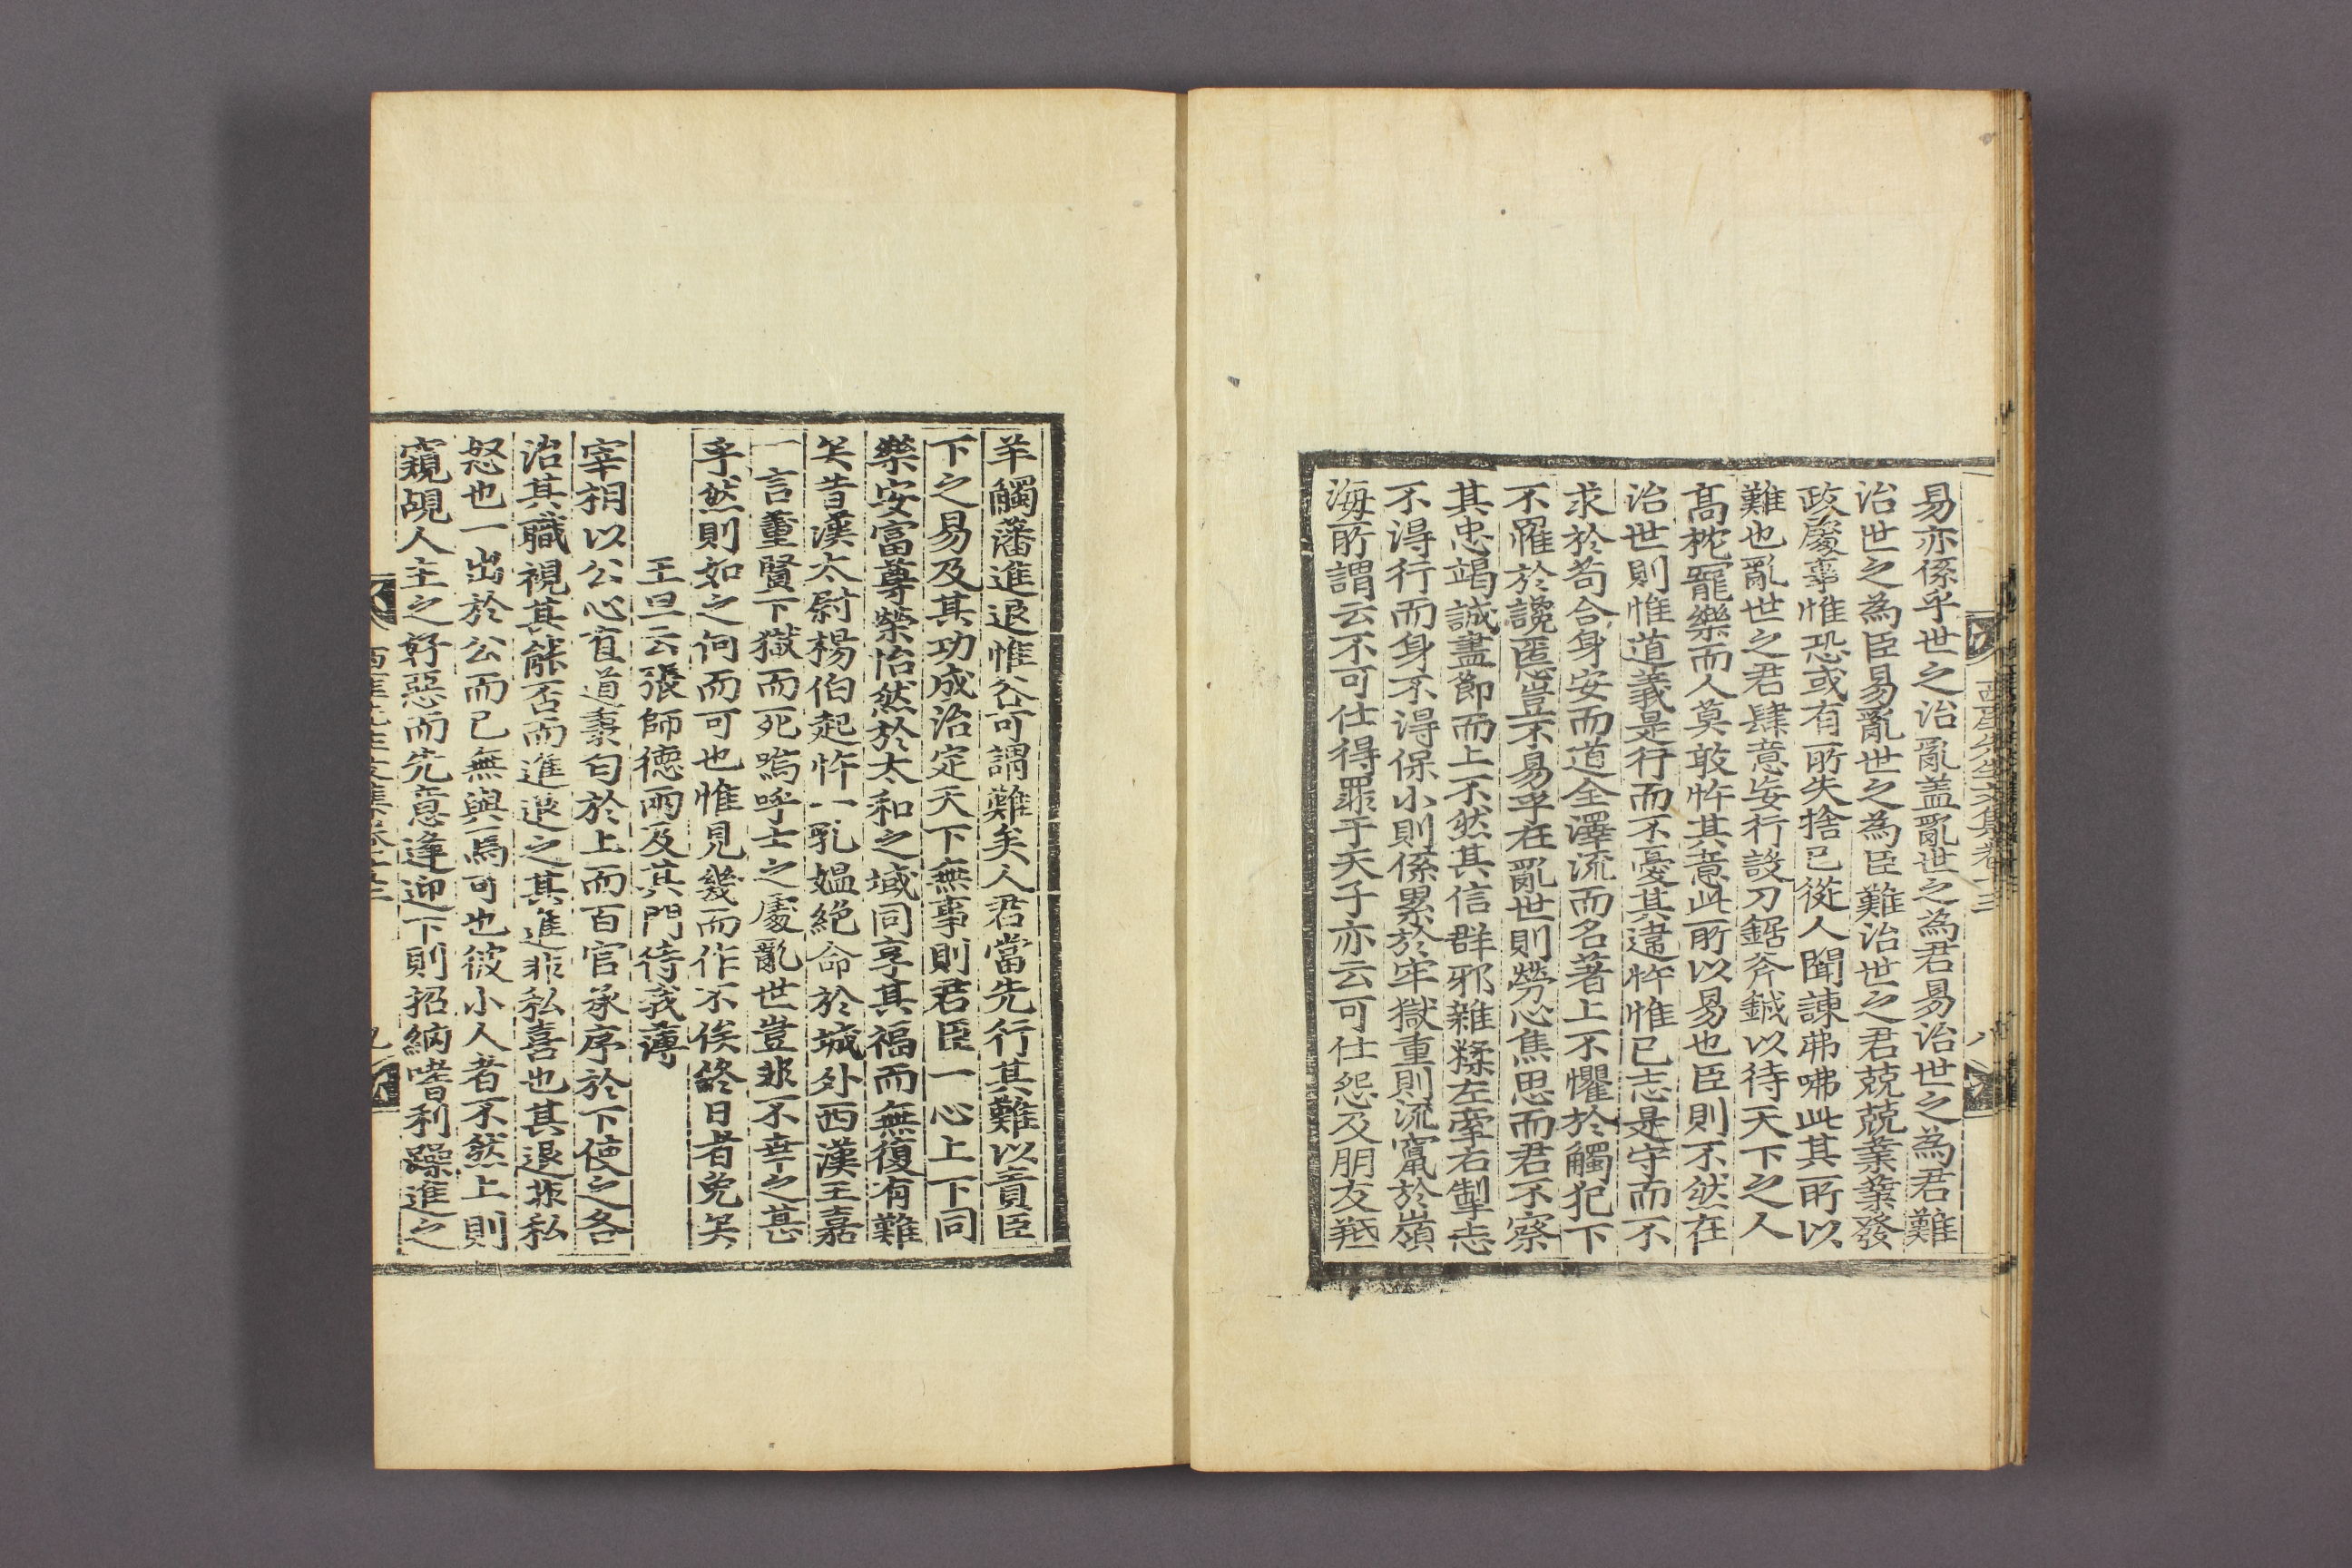 西厓先生文集卷十三
八
易亦係乎世之治亂盖亂世之為君易治世之為君難
治世之為臣易亂世之為臣難治世之君兢兢業業發
政處事惟恐或有所失捨已從人聞諫弗咈此其所以
難也亂世之君肆意妄行設刀鋸斧鉞以待天下之人
髙枕寵樂而人莫敢忤其意此所以易也臣則不然在
治世則惟道義是行而不憂其違忤惟已志是守而不
求於苟合身安而道全澤流而名著上不懼於觸犯下
不罹於讒慝豈不易乎在亂世則勞心焦思而君不察
其忠竭誠盡節而上不然其信群邪雜糅左牽右掣志
不得行而身不得保小則係累於牢獄重則流竄於嶺
海所謂云不可仕得罪于天子亦云可仕怨及朋友羝
羊觸藩進退惟谷可謂難矣人君當先行其難以責臣
下之易及其功成治定天下無事則君臣一心上下同
樂安富尊榮怡然於太和之域同享其福而無復有難
矣昔漢太尉楊伯起忤一乳媼絶命於城外西漢王嘉
一言董賢下獄而死嗚呼士之處亂世豈非不幸之甚
乎然則如之何而可也惟見幾而作不俟終日者免矣
王旦云張師德兩及其門待我薄
宰相以公心直道秉匀於上而百官承序於下使之各
治其職視其能否而進退之其進非私喜也其退非私
怒也一出於公而已無與焉可也彼小人者不然上則
窺覘人主之好惡而先意逢迎下則招納嗜利躁進之
西厓先生文集卷十三
九